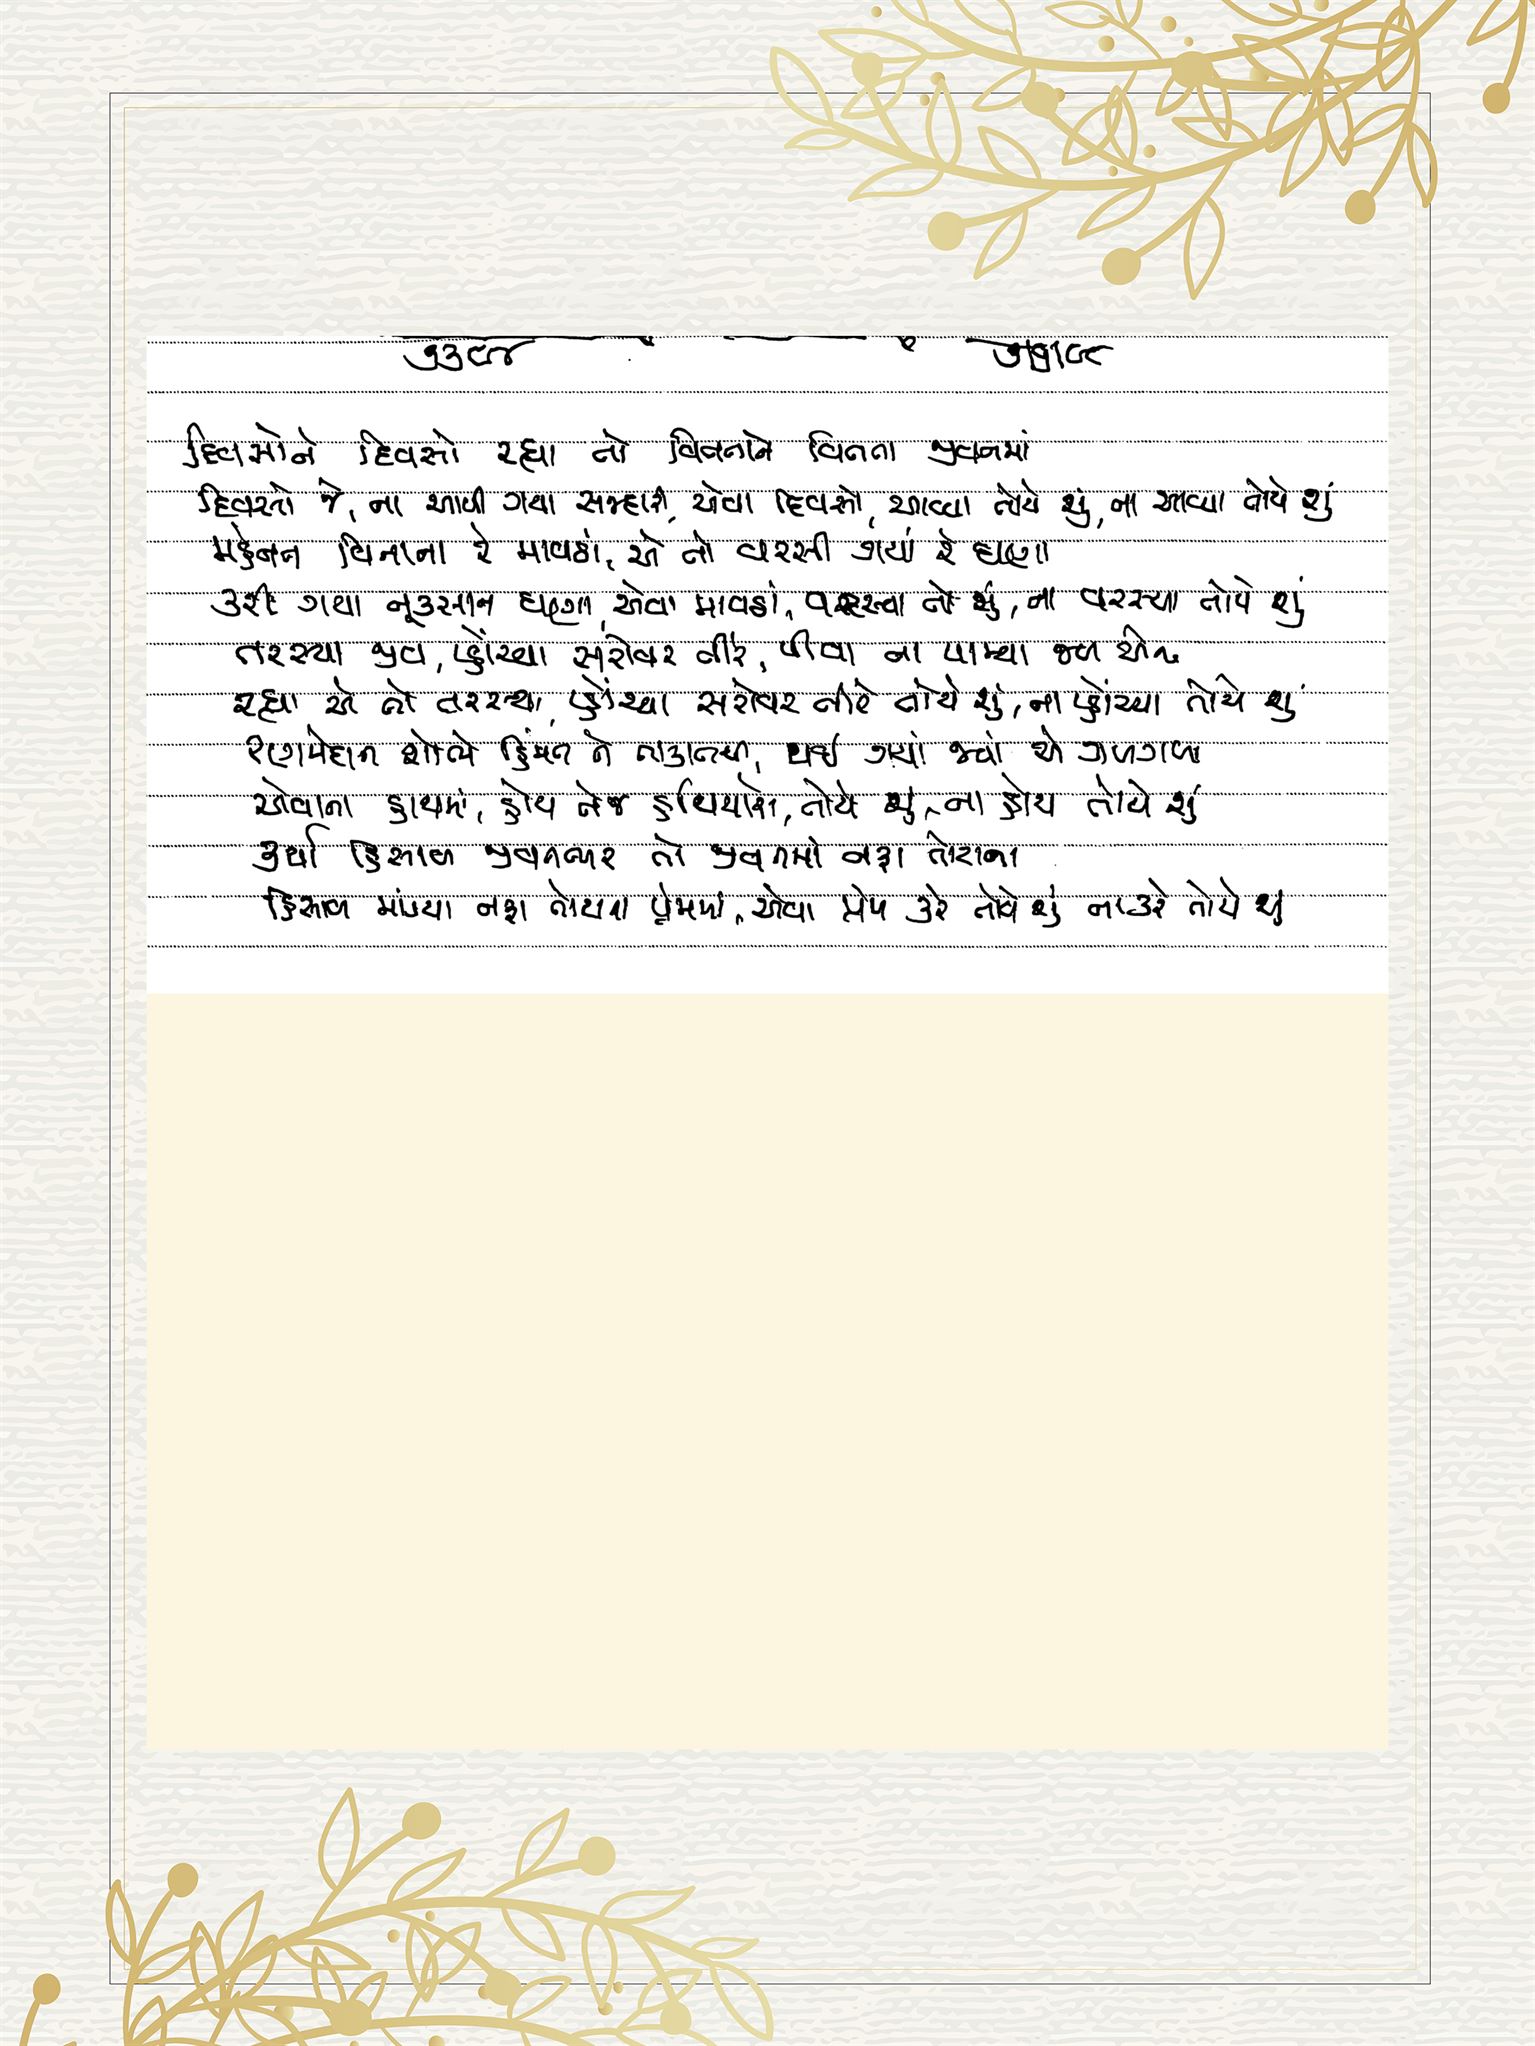 દિવસોને દિવસો રહ્યા તો વિતતાને વિતતા જીવનમાં
દિવસો જે, ના આપી ગયા સમ્હારી, એવા દિવસો, આવ્યા તોયે શું, ના આવ્યા તોયે શું
મહેનત વિનાના રે માવઠાં, એ તો વરસી ગયાં રે ઘણા
કરી ગયા નૂકસાન ઘણા, એવા માવઠાં, વરસ્યા તો શું, ના વરસ્યા તોયે શું
તરસ્યા જીવ, પ્હોંચ્યા સરોવર તીરે, પીવા ના પામ્યા જળ એના
રહ્યા એ તો તરસ્યા, પ્હોંચ્યા સરોવર તીરે તોયે શું, ના પ્હોંચ્યા તોયે શું
રણમેદાન શોભે હિંમત ને તાકાતથી, થઈ ગયાં જ્યાં એ ગળગળા
એવાના હાથમાં, હોય તેજ હથિયારો, તોયે શું, ના હોય તોયે શું
કર્યા હિસાબ જીવનભર તો જીવનમાં નફા તોટાના
હિસાબ માંડયા નફા તોટાના પ્રેમમાં, એવા પ્રેમ કરે તોયે શું ના કરે તોયે શું